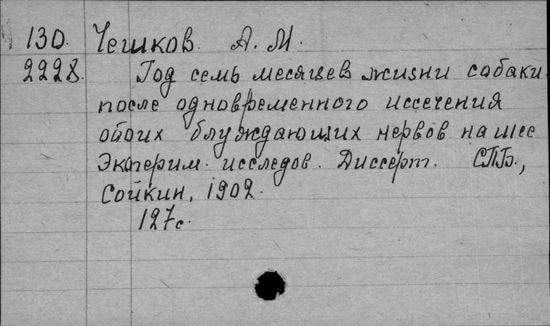 130. Чешков А. М.
2228. Год семь месяцев жизни собаки
после одновременного иссечения
обоих блуждающих нервов на шее
Эксперим. исследов. Диссерт. СПБ.,
Сойкин, 1902.
127с.